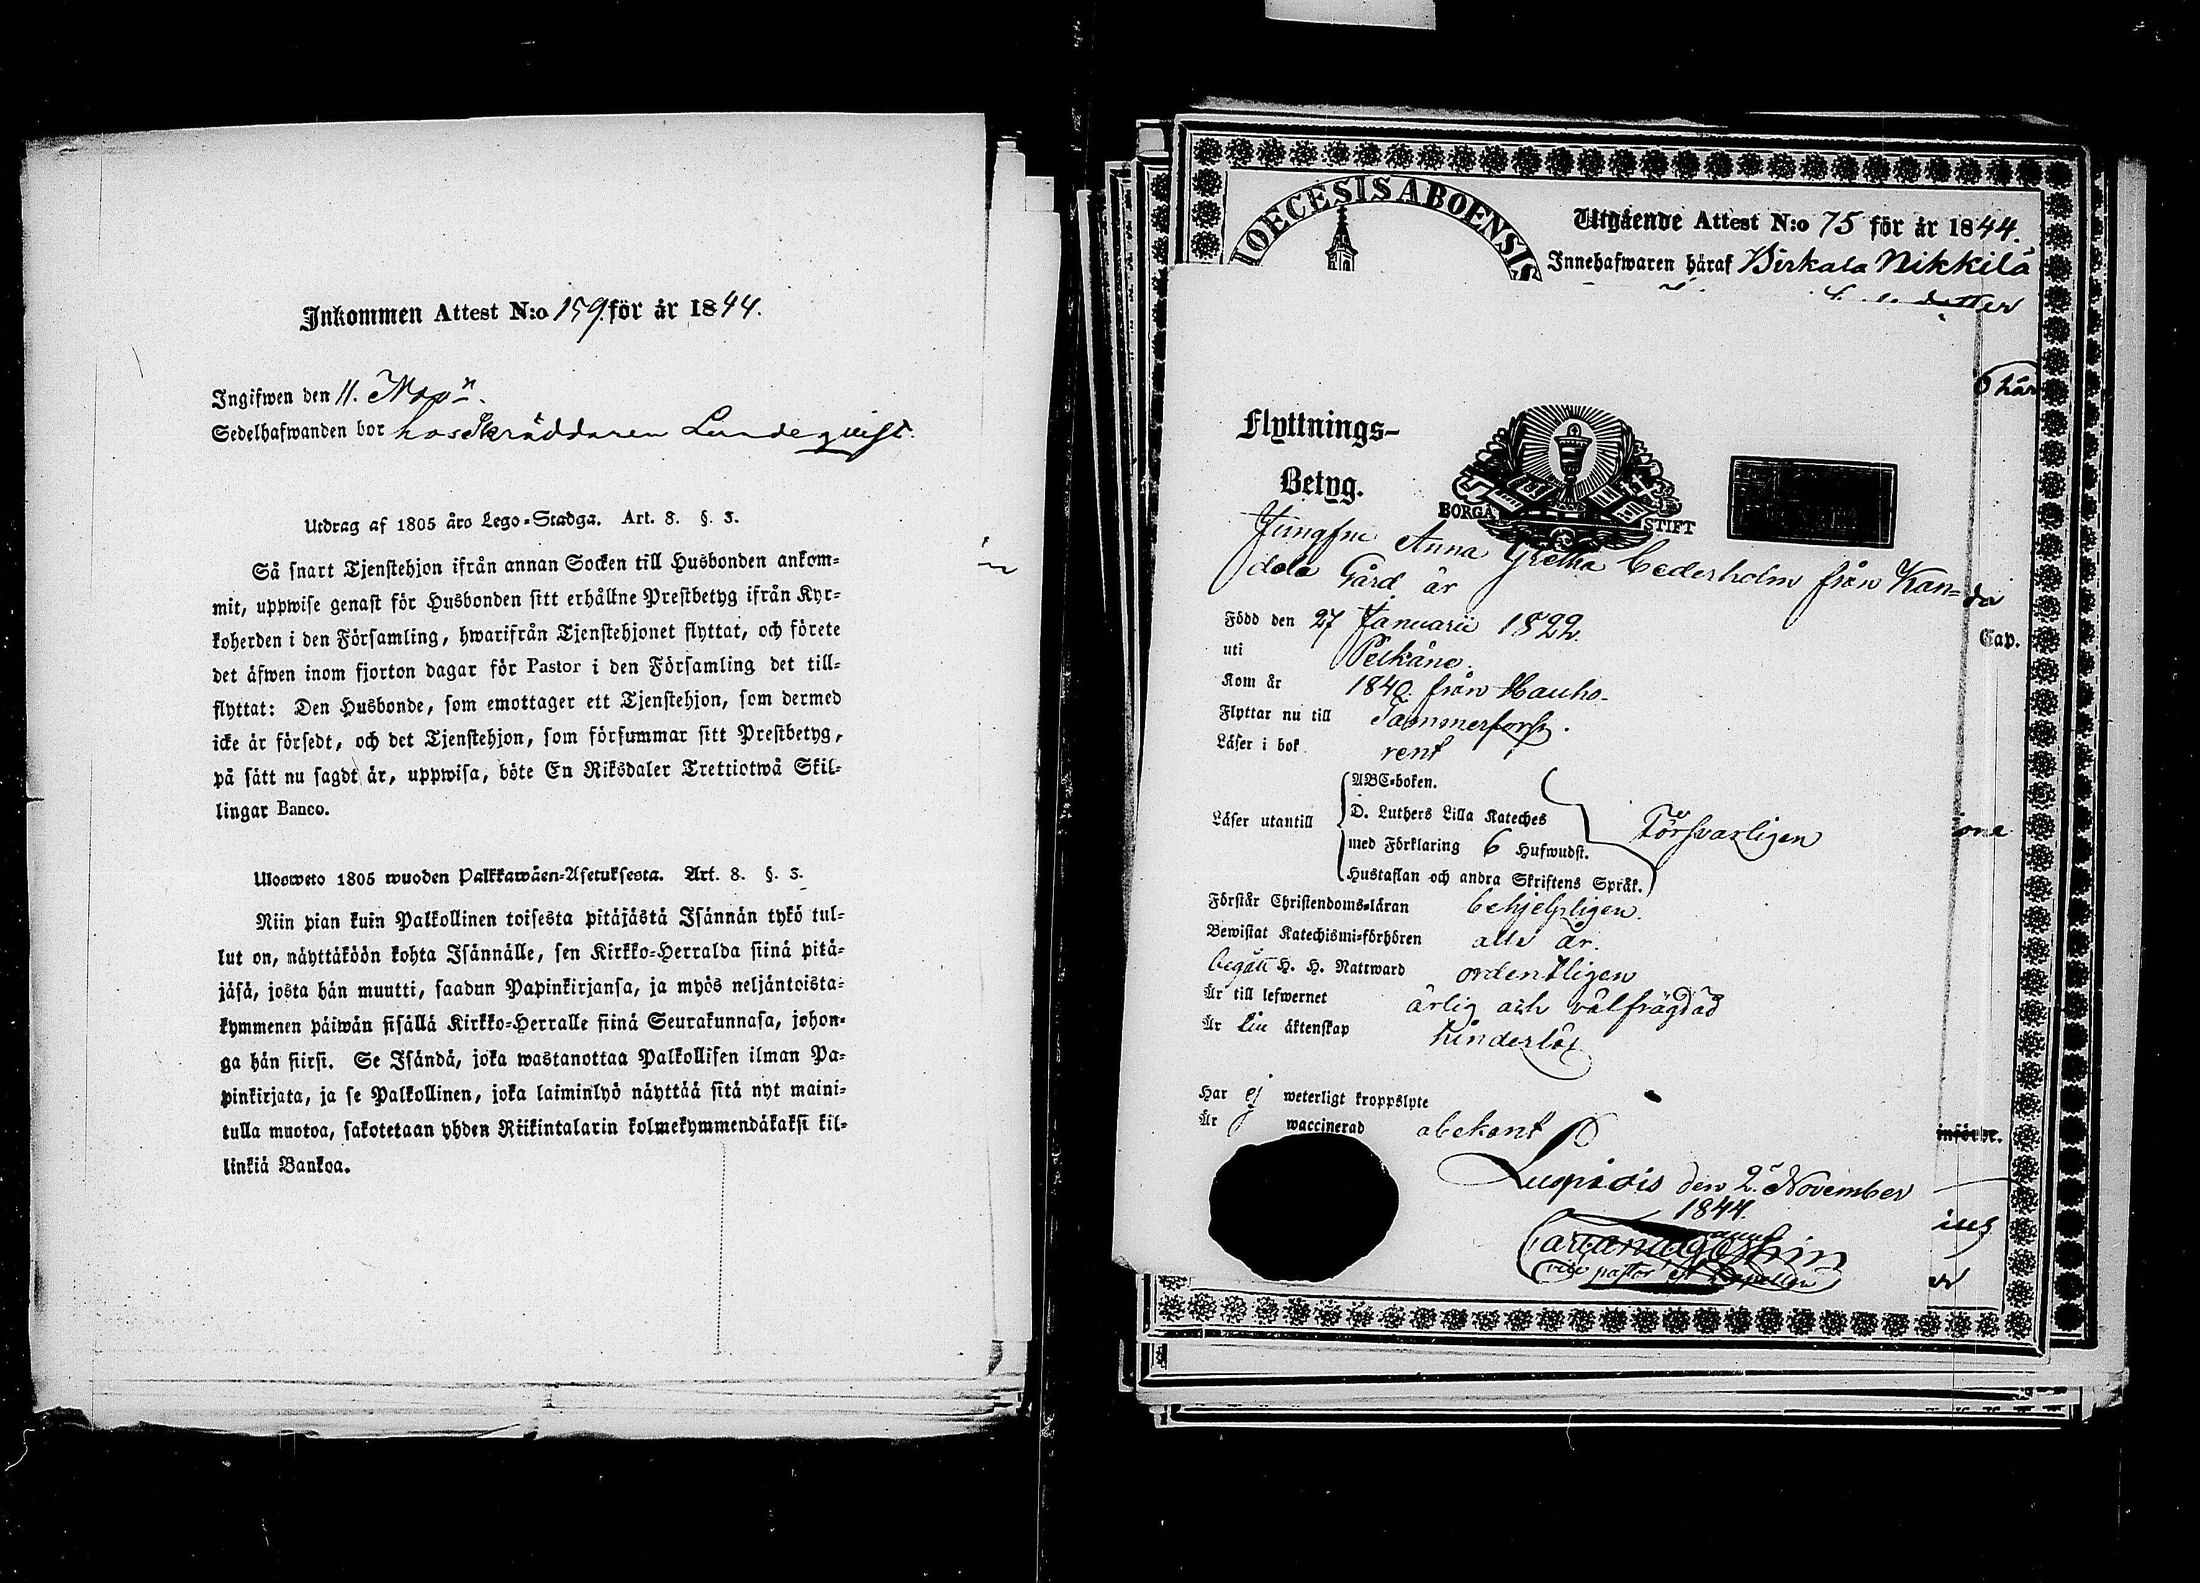 Inkommen Attest N:o 159 för år 1844.
Ingifwen den 11. Nov:
Sedelhafwanden bor hos Skräddaren Lundeqvist.
Utdrag af 1805 års Lego-Stadga. Art. 8. §. 3.
Så snart Tjenstehjon ifrån annan Socken till Husbonden ankom-
mit, uppwise genast för Husbonden sitt erhållne Prestbetyg ifrån Kyr-
koherden i den Församling, hwarifrån Tjenstehjonet flyttat, och förete
det äfwen inom fjorton dagar för Pastor i den Församling det till-
flyttat: Den Husbonde, som emottager ett Tjenstehjon, som dermed
icke är försedt, och det Tjenstehjon, som försummar sitt Prestbetyg,
på sätt nu sagdt är, uppwisa, böte En Riksdaler Trettiotwå Skil-
lingar Banco.
Ulosweto 1805 wuoden Palkkawäen-Asetuksesta. Art. 8. §. 3.
Niin pian kuin Palkollinen toisesta pitäjästä Isännän tykö tul-
lut on, näyttäköön kohta Isännälle, sen Kirkko-Herralda siinä pitä-
jäsä, josta hän muutti, saadun Papinkirjansa, ja myös neljäntoista-
kymmenen päiwän sisällä Kirkko-Herralle siinä Seurakunnasa, johon-
ga hän siirsi. Se Isändä, joka wastanottaa Palkollisen ilman Pa-
pinkirjata, ja se Palkollinen, joka laiminlyö näyttää sitä nyt maini-
tulla muotoa, sakotetaan yhden Riikintalarin kolmekymmendäkaksi kil-
linkiä Bankoa.
IOECESIS ABOENSIS
Utgående Attest N:o 75 för år 1844.
Innehafwaren häraf Birkala Nikkilä
dotter
här
Flyttnings-
Betyg.
BORGÅ STIFT
Jungfru Anna Gretha Cederholm från Kan-
dola Gård är
Född den 27 Januarii 1822.
Cap.
uti Pelkäne.
Kom år 1840. från Hauho.
Flyttar nu till Tammerfors.
Läser i bok rent
ABC-boken.
Läser utantill D. Luthers Lilla Kateches Försvarligen
med Förklaring 6 Hufwudst.
Hustaflan och andra Skriftens Språk.
Förstår Christendoms-läran behjelpligen.
Bewistat Katechismi-förhören alla år.
begått H. H. Nattward ordentligen
Är till lefwernet ärlig och välfrägdad
Är till äktenskap hinderlös
Har ej weterligt kroppslyte
Är waccinerad obekant
införer.
den 2. November
1844.
vice pastor